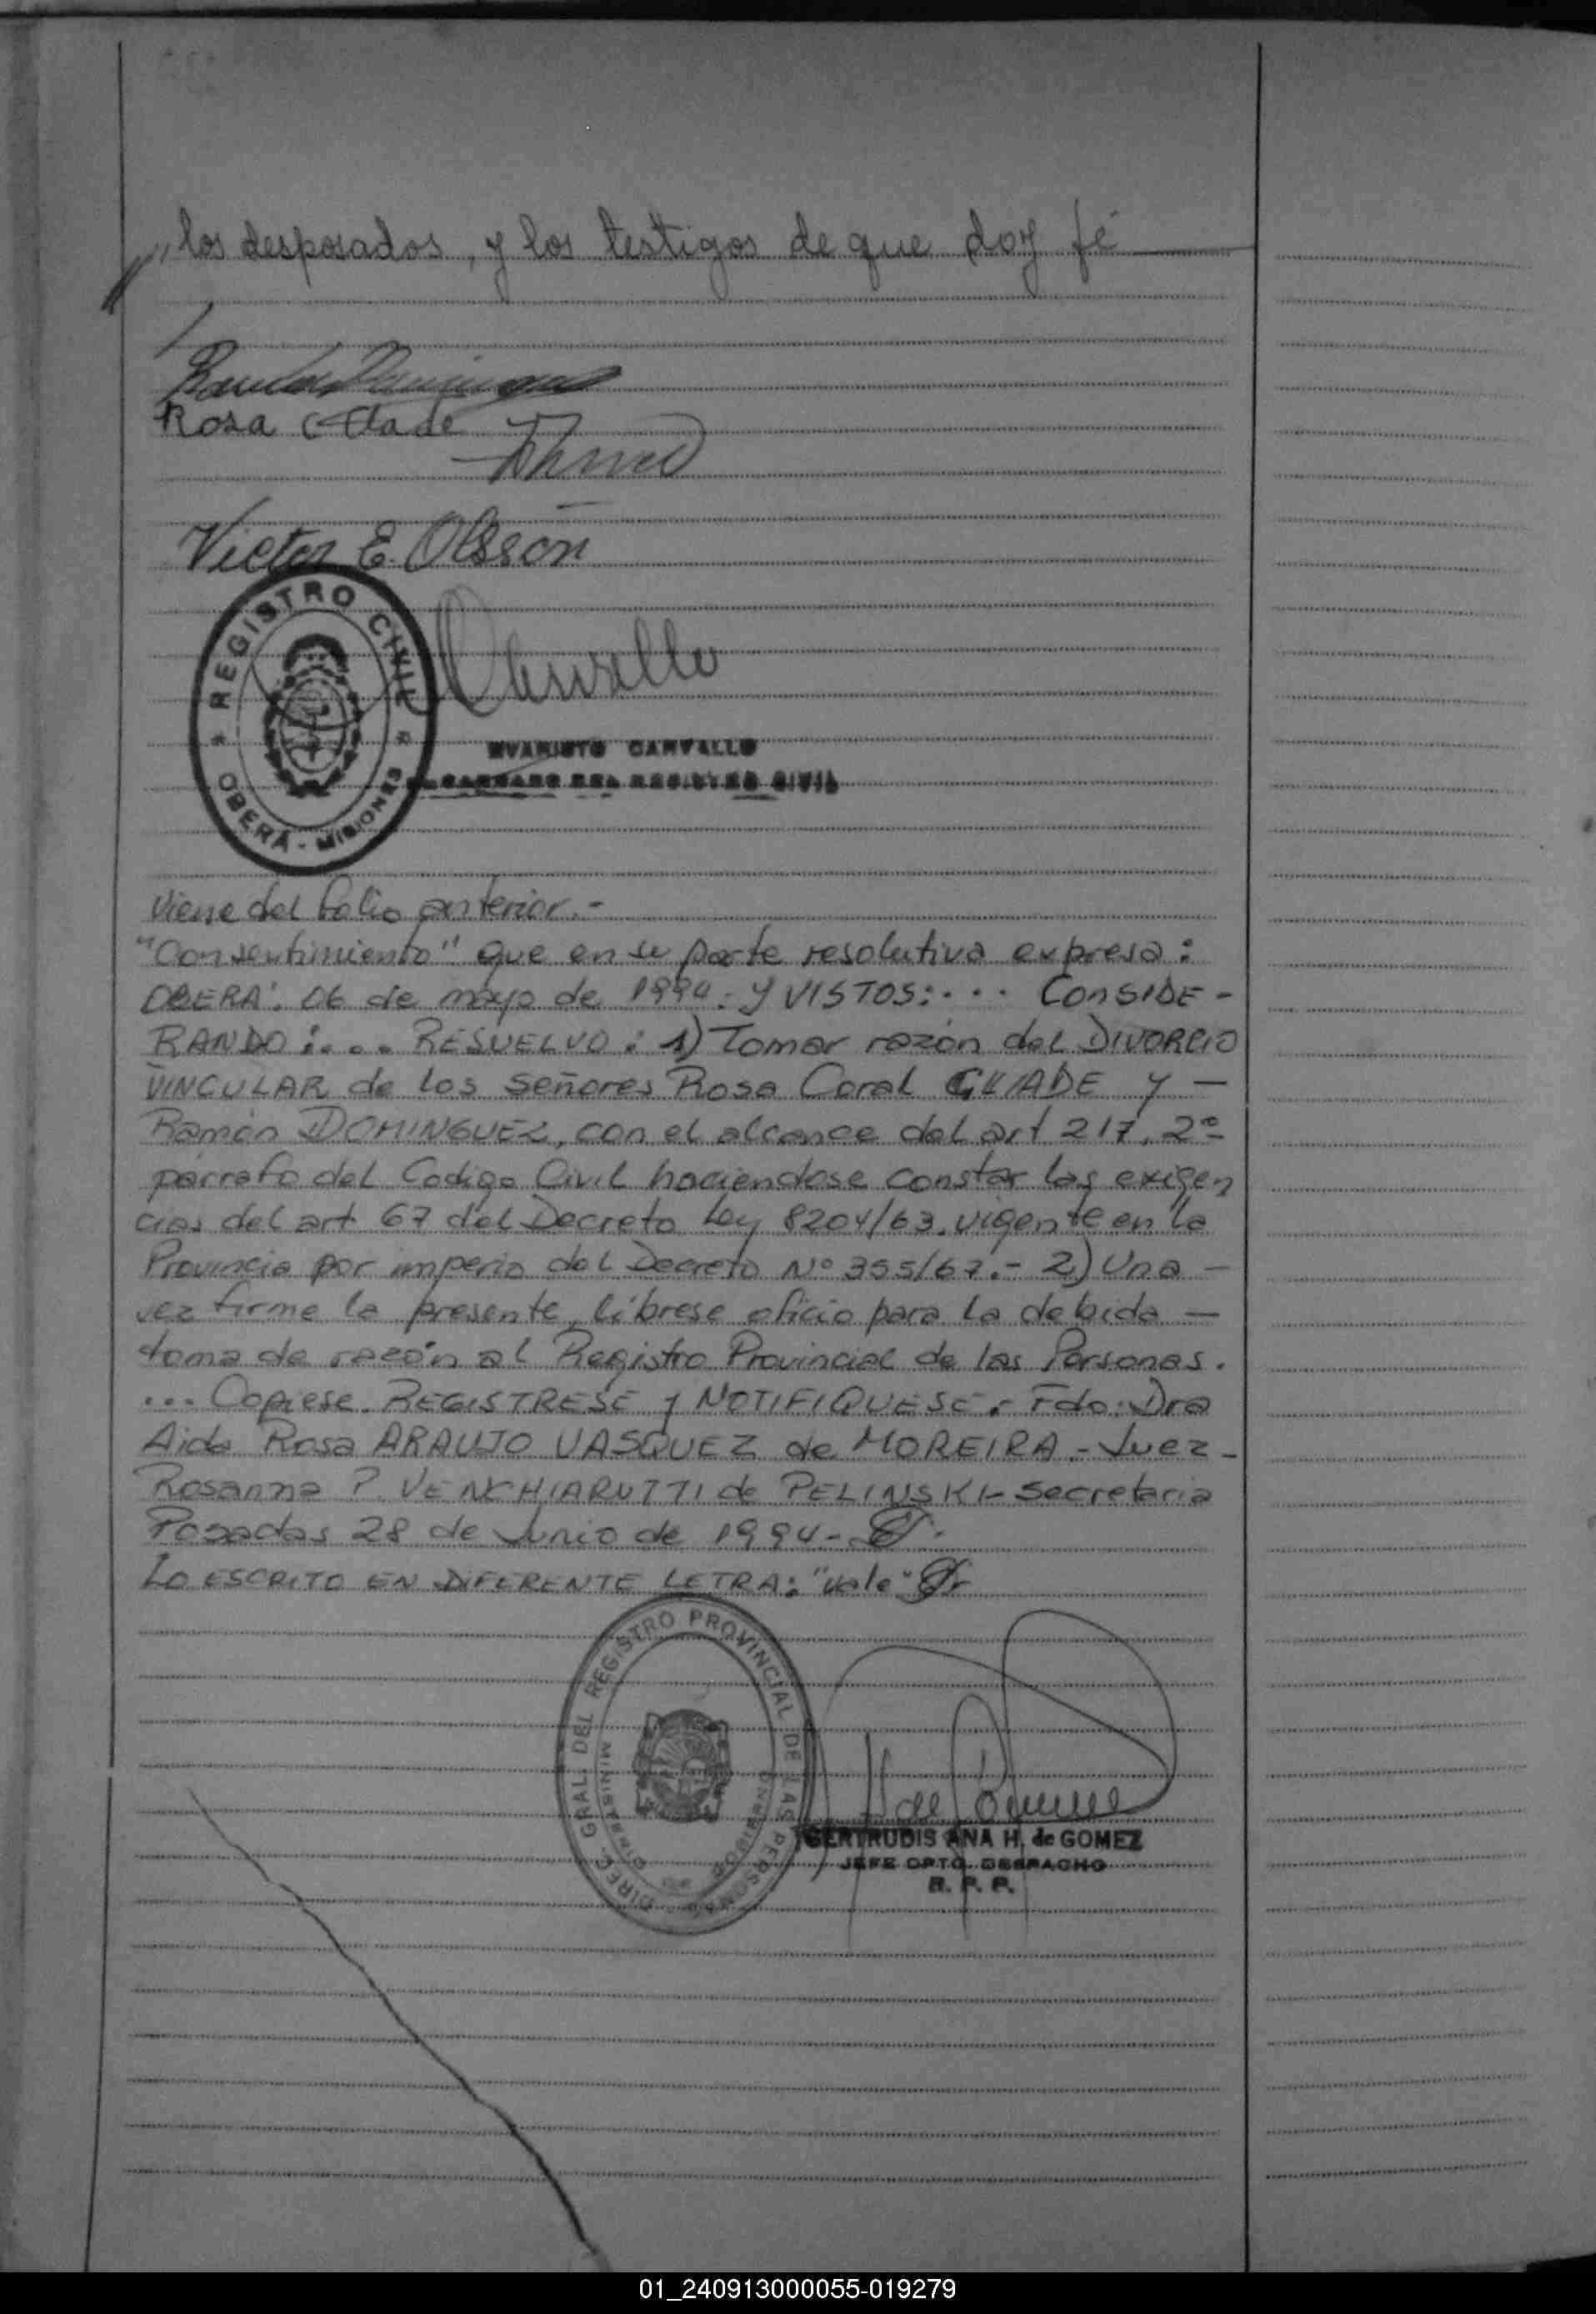 ,, los desposados, y los testigos de que doy fé
Rosa
Victor E. Olsson
REGISTRO CIVIL
OBERÁ - MISIONES
EVARISTO CARVALLO
ENCARGADO DEL REGISTRO CIVIL
viene del folio anterior.-
"Consentimiento" que en su parte resolutiva expresa:
OBERA'. 06 de mayo de 1994. Y VISTOS:... CONSIDE-
RANDO:.... RESUELVO: 1) Tomar razón del DIVORCIO
VINCULAR de los señores Rosa Coral GLIADE y -
Ramón DOMINGUEZ, con el alcance del art 217, 2º
párrafo del Codigo Civil haciendose constar las exigen
cias del art 67 del Decreto Ley 8204/63. vigente en la
Provincia por imperio del Decreto Nº 355/67.- 2) Una -
vez firme la presente, líbrese oficio para la debida -
toma de razón al Registro Provincial de las Personas.
... Copiese. REGISTRESE y NOTIFIQUESE. Fdo: Dra
Aida Rosa ARAUJO VASQUEZ de MOREIRA - Juez -
Rosanna P. VENCHIARUTTI de PELINSKI - Secretaria
Posadas 28 de Junio de 1994-
LO ESCRITO EN DIFERENTE LETRA: "vale"
DIREC. GRAL. DEL REGISTRO PROVINCIAL DE LAS PERSONAS
GERTRUDIS ANA H. de GOMEZ
JEFE DPTO. DESPACHO
R. P. P.
01_240913000055-019279